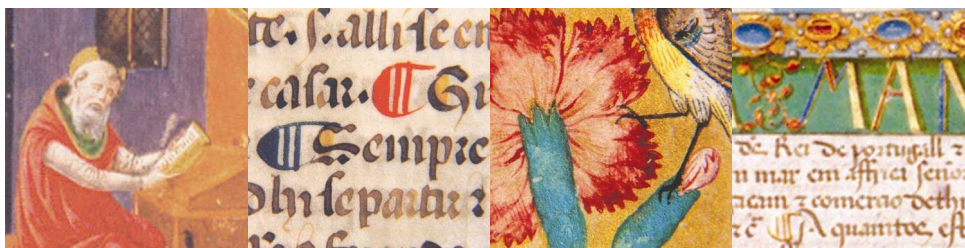 te. s. alli se en
casar. ¶ Gu
¶ Sempre
dhi se partir z
MAN
de. Rei de portugall z
n mar em affrica señor
ticam z comercio deth
z c̃ ¶ A quamtos est